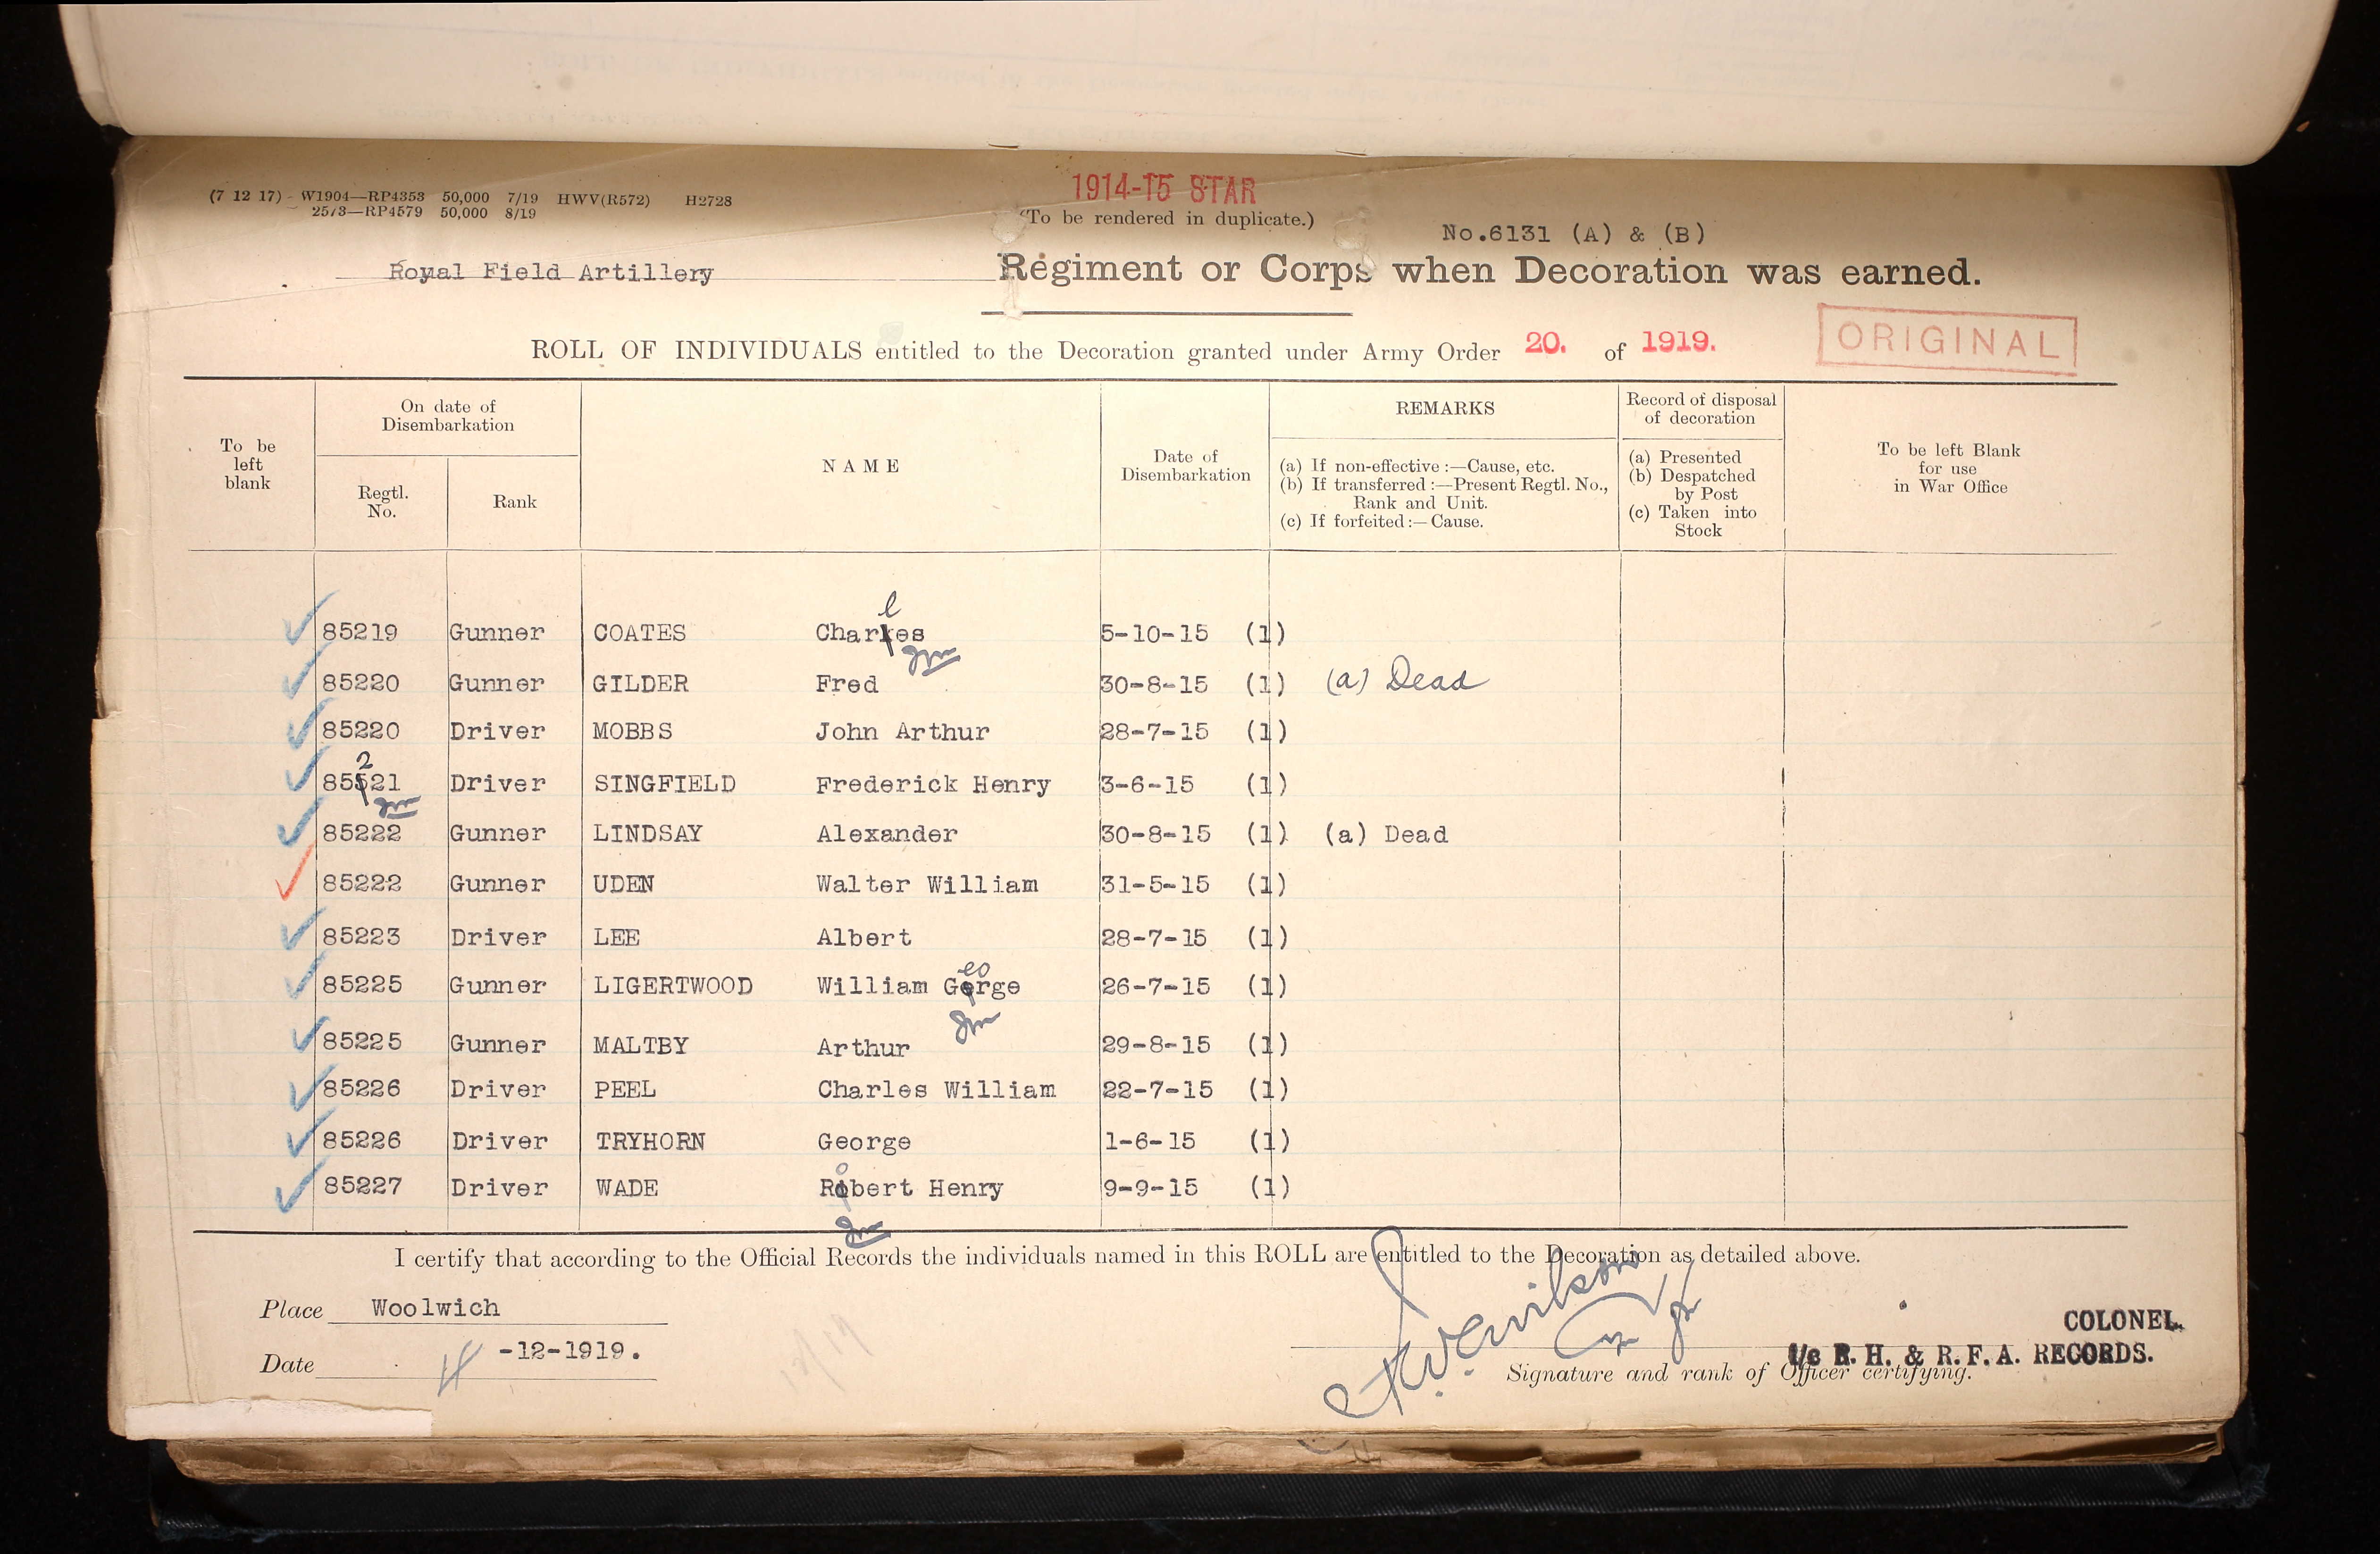 1914-15 STAR
(7 12 17) W1904—RP4353 50,000 7/19 HWV(R572) H2728
2573—RP4579 50,000 8/19
(To be rendered in duplicate.)
No.6131 (A) & (B)
Royal Field Artillery Regiment or Corps when Decoration was earned.
ROLL OF INDIVIDUALS entitled to the Decoration granted under Army Order 20. of 1919.
ORIGINAL
To be left blank
On date of Disembarkation
Regtl. No.
Rank
NAME
Date of Disembarkation
REMARKS
(a) If non-effective :—Cause, etc.
(b) If transferred :—Present Regtl. No., Rank and Unit.
(c) If forfeited :—Cause.
Record of disposal of decoration
(a) Presented
(b) Despatched by Post
(c) Taken into Stock
To be left Blank for use in War Office
85219 Gunner COATES Charles 5-10-15 (1)
85220 Gunner GILDER Fred 30-8-15 (1) (a) Dead
85220 Driver MOBBS John Arthur 28-7-15 (1)
85221 Driver SINGFIELD Frederick Henry 3-6-15 (1)
85222 Gunner LINDSAY Alexander 30-8-15 (1) (a) Dead
85222 Gunner UDEN Walter William 31-5-15 (1)
85223 Driver LEE Albert 28-7-15 (1)
85225 Gunner LIGERTWOOD William George 26-7-15 (1)
85225 Gunner MALTBY Arthur 29-8-15 (1)
85226 Driver PEEL Charles William 22-7-15 (1)
85226 Driver TRYHORN George 1-6-15 (1)
85227 Driver WADE Robert Henry 9-9-15 (1)
I certify that according to the Official Records the individuals named in this ROLL are entitled to the Decoration as detailed above.
Place Woolwich
Date -12-1919.
COLONEL
I/c R. H. & R. F. A. RECORDS.
Signature and rank of Officer certifying.